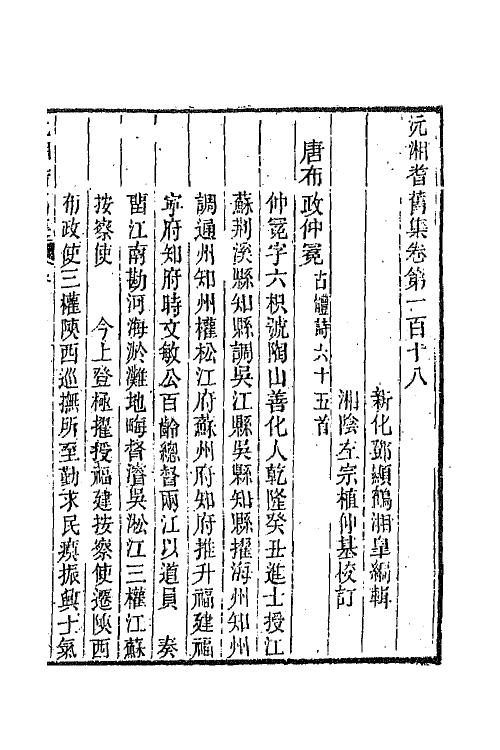 沅湘耆舊集卷第一百十八
新化鄧顯鶴湘皐編輯
湘陰左宗植仲基校訂
唐布政仲冕古體詩六十五首
仲冕字六枳號陶山善化人乾隆癸丑進士授江
蘇荆溪縣知縣調吳江縣吳縣知縣擢海州知州
調通州知州權松江府蘇州府知府推升福建福
寧府知府時文敏公百齡總督兩江以道員 奏
畱江南勘河海淤灘地畮督濬吳淞江三權江蘇
按察使 今上登極擢授福建按察使遷陝西
布政使三權陝西巡撫所至勤求民瘼振興士氣